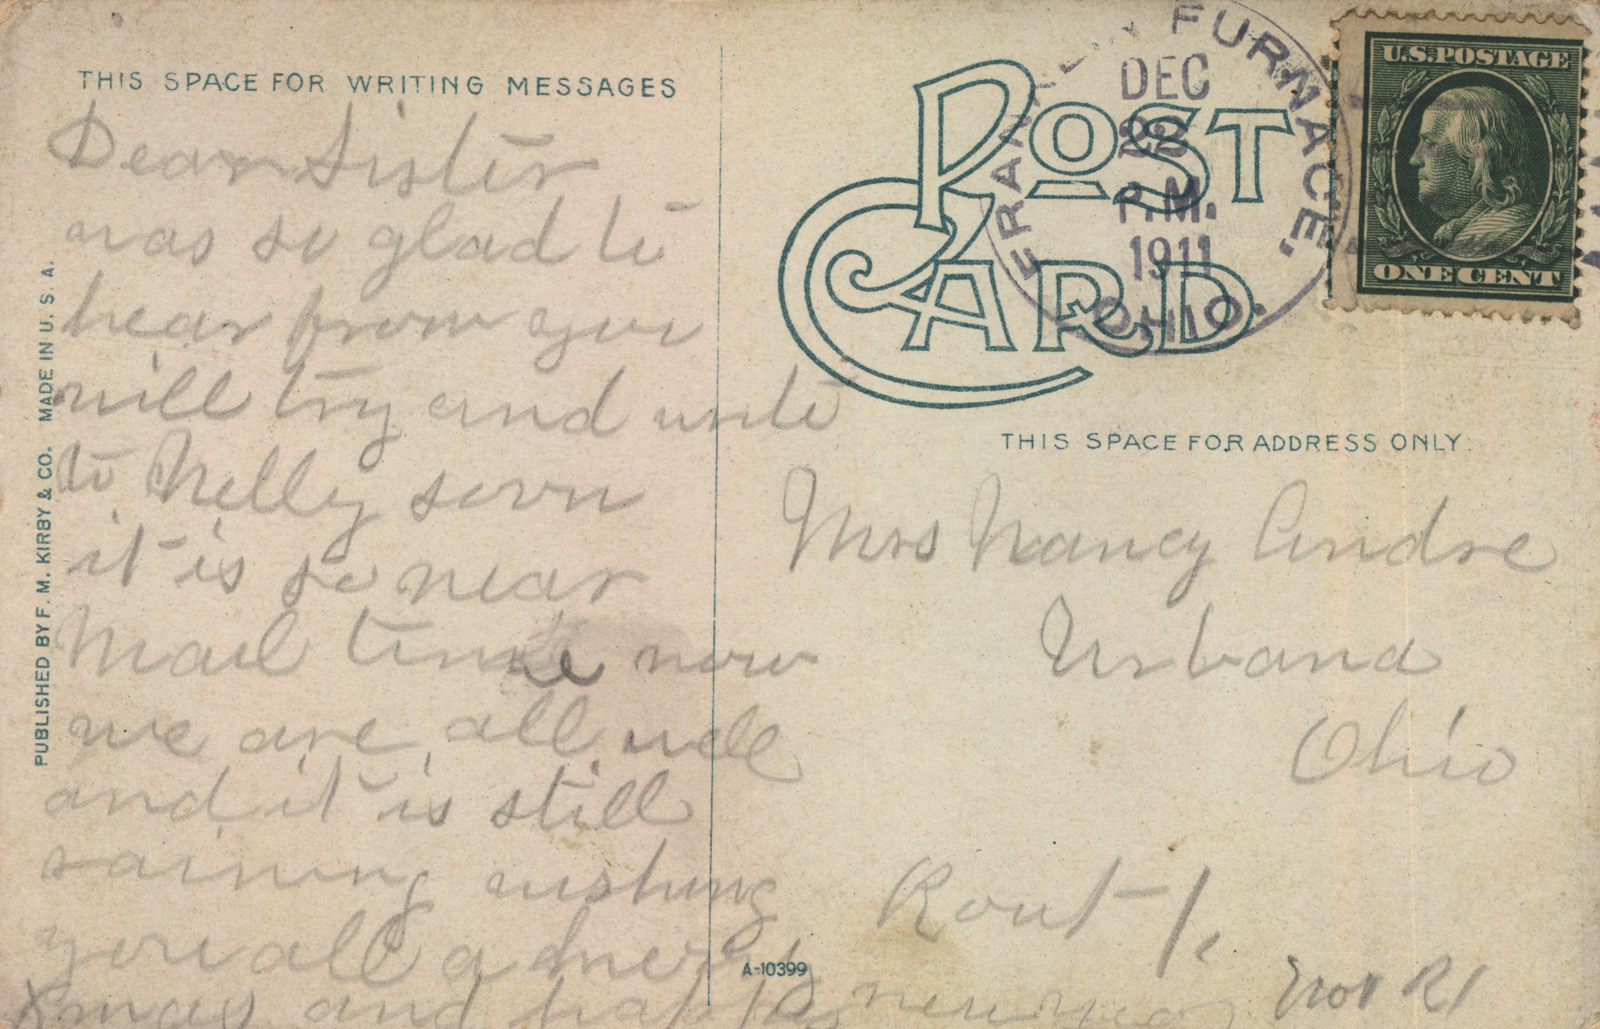 THIS SPACE FOR WRITING MESSAGES
Dear Sister
was so glad to
hear from you
will try and write
to Nelly soon
it is so near
Mail time now
we are all well
and it is still
raining wishing
you all a
Xmas and happy new year
PUBLISHED BY F. M. KIRBY & CO. MADE IN U. S. A.
POST CARD
FRANKLIN FURNACE.
DEC
18
P.M.
1911
OHIO.
U.S. POSTAGE
ONE CENT
THIS SPACE FOR ADDRESS ONLY.
Mrs Nancy Andre
Urbana
Ohio
Rout 1.
R1
A-10399